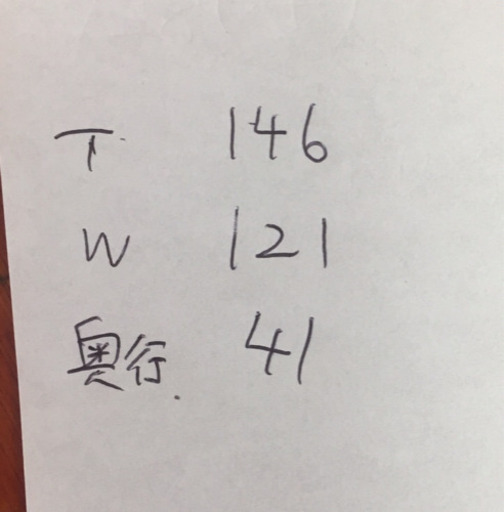 T 146
W 121
奥行 41